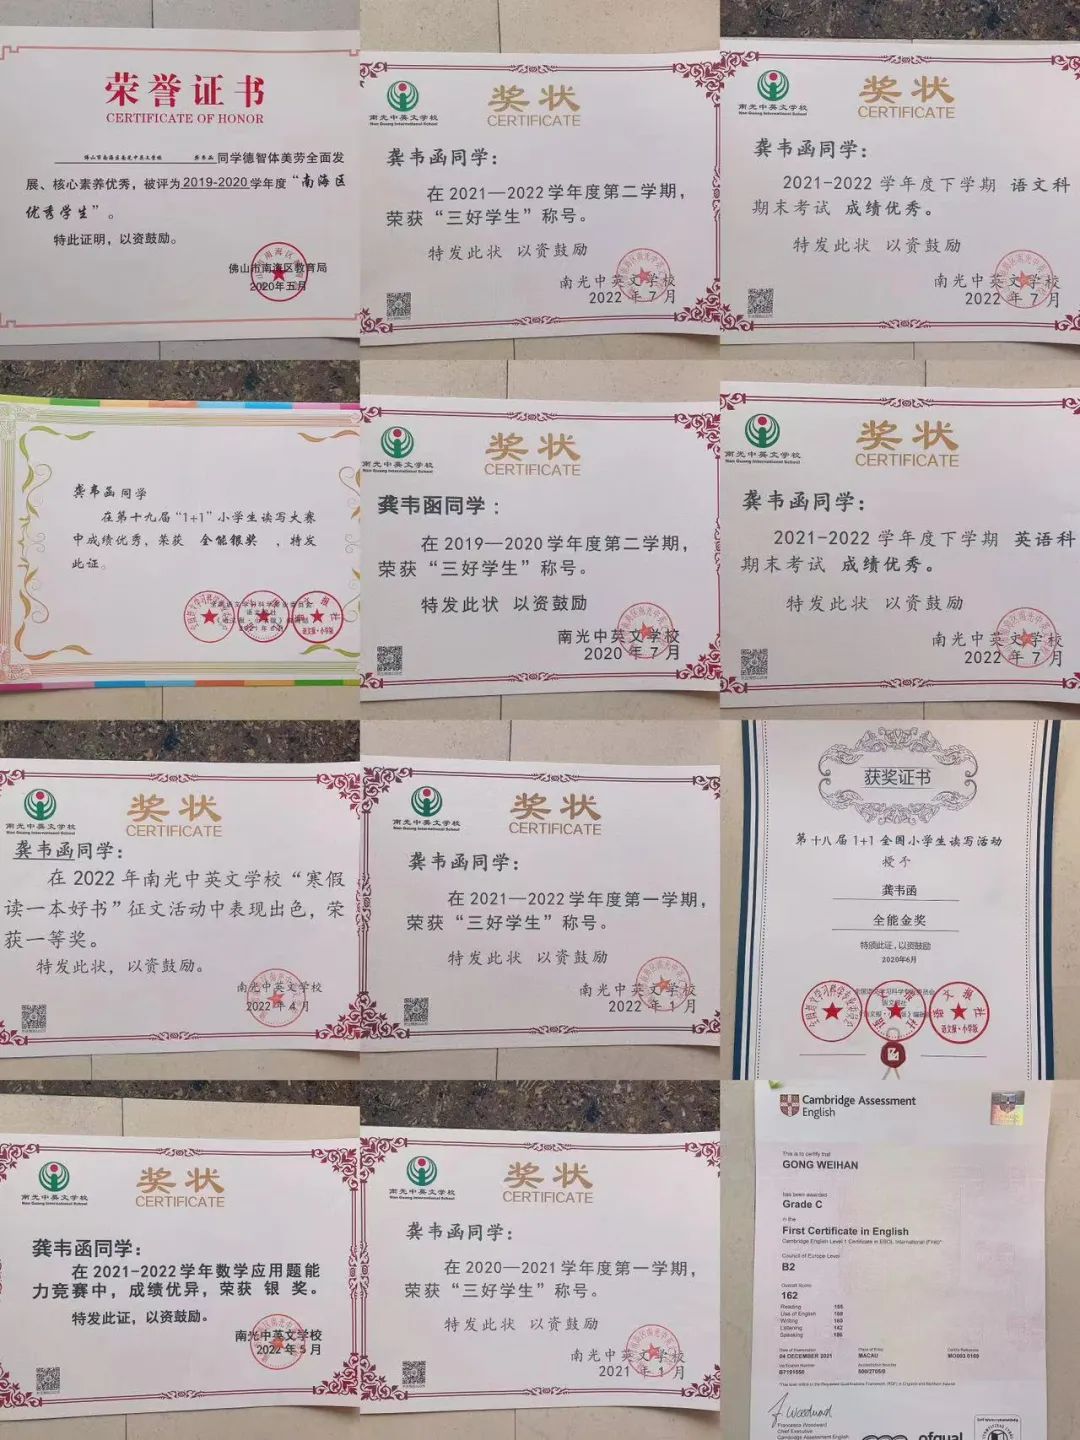 荣誉证书
CERTIFICATE OF HONOR
佛山市南海区南光中英文学校 龚韦函 同学德智体美劳全面发
展、核心素养优秀,被评为2019-2020学年度“南海区
优秀学生”。
特此证明,以资鼓励。
佛山市南海区教育局
2020年五月
南光中英文学校
Nan Guang International School
奖状
CERTIFICATE
龚韦函同学:
在2021—2022学年度第二学期,
荣获“三好学生”称号。
特发此状 以资鼓励
南光中英文学校
2022年7月
南光中英文学校
Nan Guang International School
奖状
CERTIFICATE
龚韦函同学:
2021-2022学年度下学期 语文科
期末考试 成绩优秀。
特发此状 以资鼓励
南光中英文学校
2022年7月
龚韦函同学
在第十九届“1+1”小学生读写大赛
中成绩优秀,荣获 全能银奖 ,特发
此证。
南光中英文学校
Nan Guang International School
奖状
CERTIFICATE
龚韦函同学:
在2019—2020学年度第二学期,
荣获“三好学生”称号。
特发此状 以资鼓励
南光中英文学校
2020年7月
南光中英文学校
Nan Guang International School
奖状
CERTIFICATE
龚韦函同学:
2021-2022学年度下学期 英语科
期末考试 成绩优秀。
特发此状 以资鼓励
南光中英文学校
2022年7月
南光中英文学校
Nan Guang International School
奖状
CERTIFICATE
龚韦函同学:
在2022年南光中英文学校“寒假
读一本好书”征文活动中表现出色,荣
获一等奖。
特发此状,以资鼓励。
南光中英文学校
2022年4月
南光中英文学校
Nan Guang International School
奖状
CERTIFICATE
龚韦函同学:
在2021—2022学年度第一学期,
荣获“三好学生”称号。
特发此状 以资鼓励
南光中英文学校
2022年1月
获奖证书
第十八届1+1全国小学生读写活动
授予
龚韦函
全能金奖
特颁此证,以资鼓励
2020年6月
南光中英文学校
Nan Guang International School
奖状
CERTIFICATE
龚韦函同学:
在2021-2022学年数学应用题能
力竞赛中,成绩优异,荣获 银 奖。
特发此证,以资鼓励。
南光中英文学校
2022年5月
南光中英文学校
Nan Guang International School
奖状
CERTIFICATE
龚韦函同学:
在2020—2021学年度第一学期,
荣获“三好学生”称号。
特发此状 以资鼓励
南光中英文学校
2021年1月
Cambridge Assessment
English
This is to certify that
GONG WEIHAN
has been awarded
Grade C
in the
First Certificate in English
Council of Europe Level
B2
Overall Score
162
Reading
Use of English
Writing
Listening 142
Speaking
Date of Examination
04 DECEMBER 2021
Place of Entry
MACAU
Francesca Woodward
Chief Executive
Cambridge Assessment English
ofqual